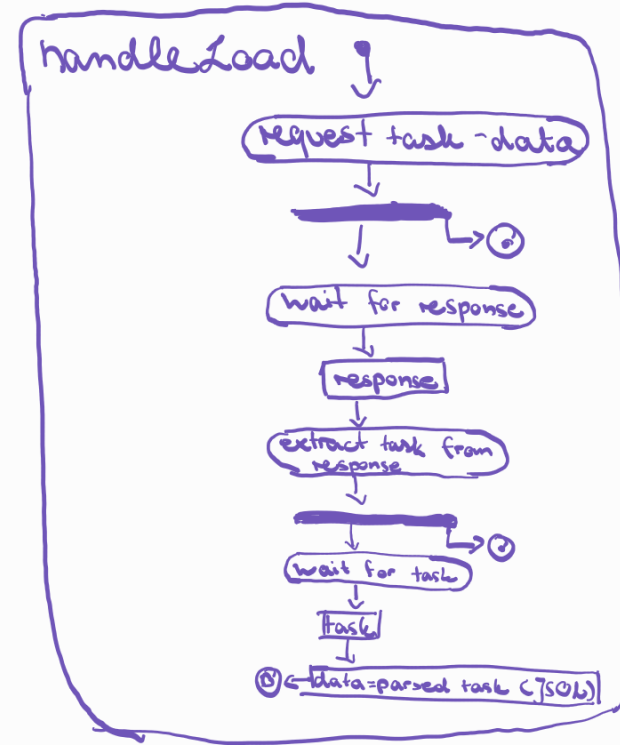 handleLoad
request task-data
wait for response
response
extract task from
response
wait for task
task
data=parsed task (JSOL)